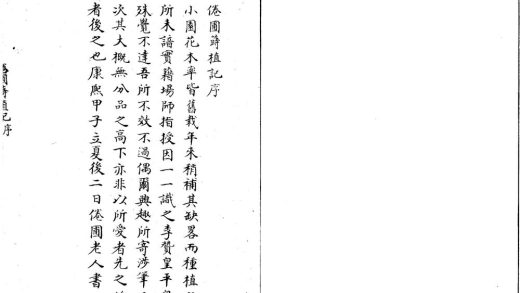 倦圃蒔植記序
小園花木率皆舊栽年來稍補其缺畧而種植
所未諳實藉場師指授因一一識之李贊皇平泉
殊覺不達吾所不效不過偶爾興趣所寄涉筆
次其大概無分品之高下亦非以所愛者先之
者後之也康熙甲子立夏後二日倦圃老人書
倦圃蒔植記序